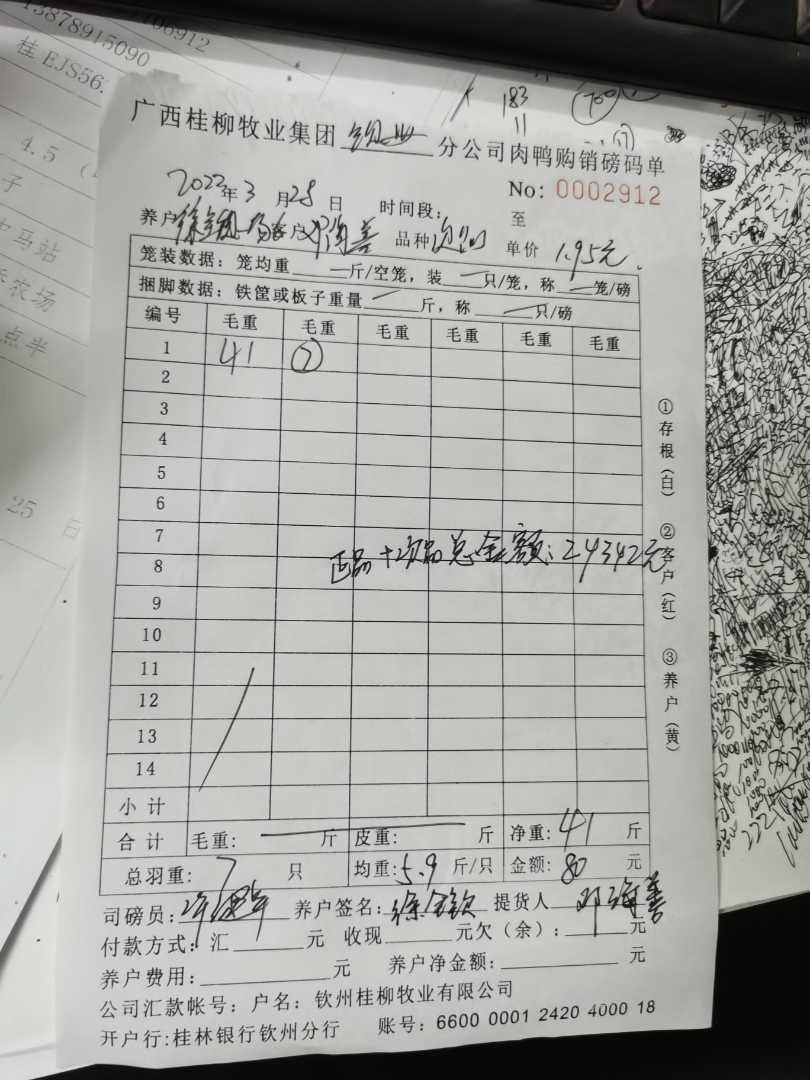 13878915090
706912
桂 EJS56.
4.5
183
11
700
子
中马站
农场
点半
25 日
广西桂柳牧业集团 分公司肉鸭购销磅码单
No: 0002912
2022年3月28日 时间段: 至
养户 客户 邓海善 品种 次品 单价 1.95元.
笼装数据: 笼均重 斤/空笼, 装 只/笼, 称 笼/磅
捆脚数据: 铁筐或板子重量 斤, 称 只/磅
编号 毛重 毛重 毛重 毛重 毛重 毛重
1 41 ⑦
2
3
4
5
6
7
正品+次品总金额: 24342元
8
9
10
11
12
13
14
小计
合计 毛重: 斤 皮重: 斤 净重: 41 斤
总羽重: 7 只 均重: 5.9 斤/只 金额: 80 元
司磅员: 养户签名: 徐金钦 提货人 邓海善
付款方式: 汇 元 收现 元欠(余): 元
养户费用: 元 养户净金额: 元
公司汇款帐号: 户名: 钦州桂柳牧业有限公司
开户行:桂林银行钦州分行 账号: 6600 0001 2420 4000 18
①存根(白) ②客户(红) ③养户(黄)